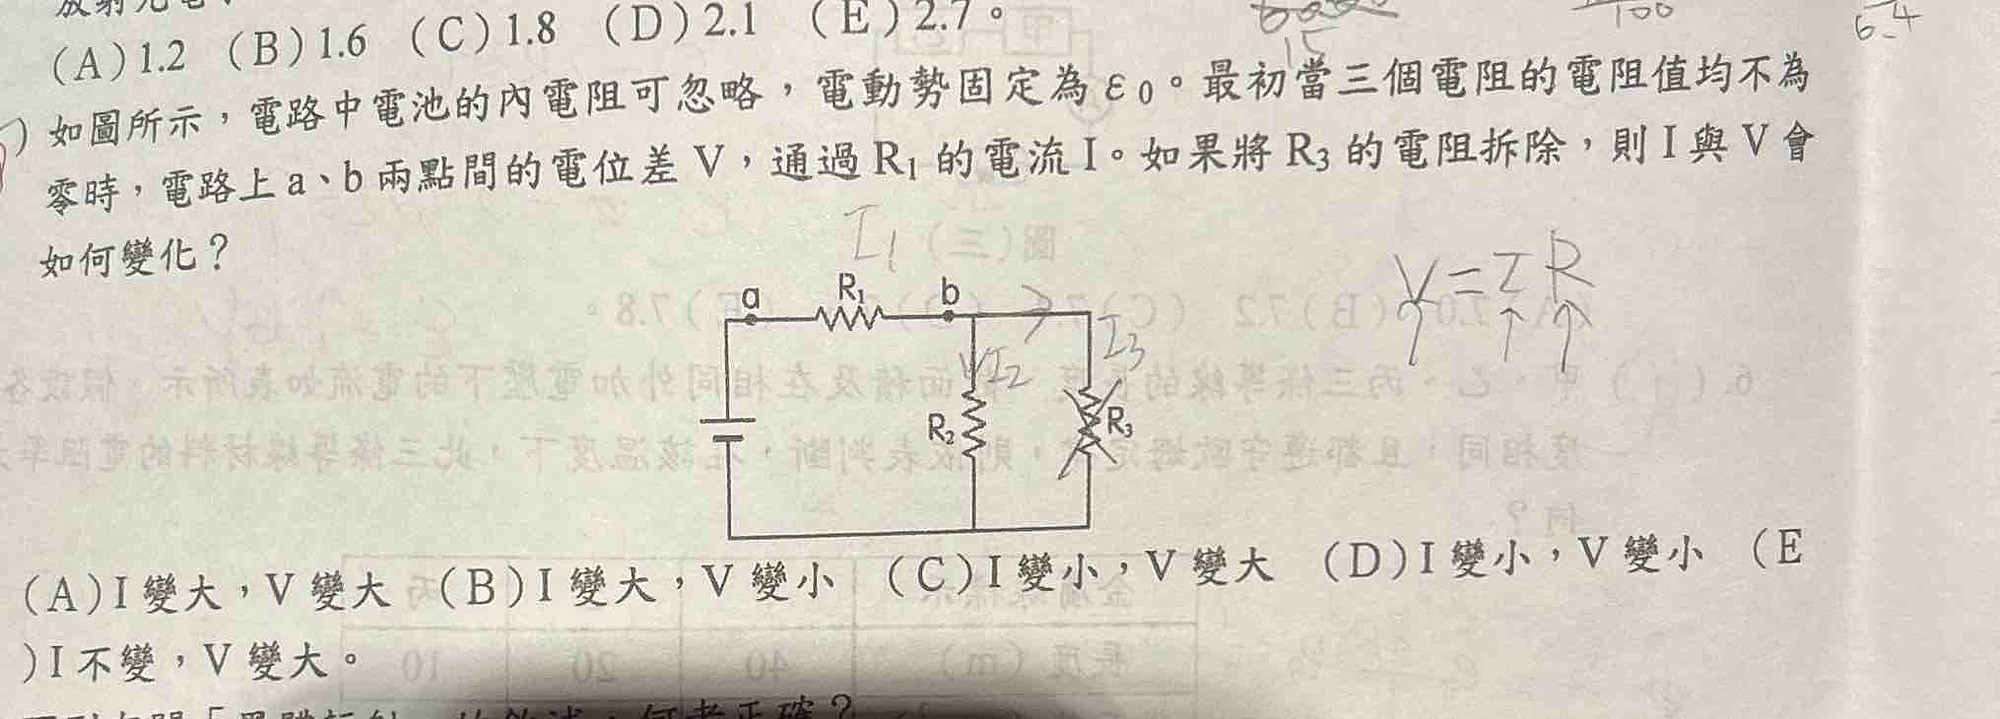 (A)1.2 (B)1.6 (C)1.8 (D)2.1 (E)2.7。
15
100
6.4
)如圖所示，電路中電池的內電阻可忽略，電動勢固定為ε0。最初當三個電阻的電阻值均不為
零時，電路上a、b兩點間的電位差V，通過R1的電流I。如果將R3的電阻拆除，則I與V會
如何變化？
I1
V=IR
a R1 b
I3
I2
R2 R3
(A)I變大，V變大 (B)I變大，V變小 (C)I變小，V變大 (D)I變小，V變小 (E
)I不變，V變大。